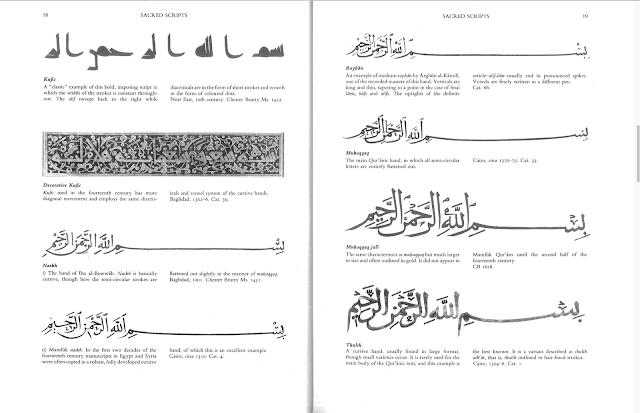 18
SACRED SCRIPTS
Kufic
A "classic" example of this bold, imposing script in
which the width of the strokes is constant through-
out. The alif sweeps back to the right while
diacriticals are in the form of short strokes and vowels
in the form of coloured dots.
Near East, 10th century. Chester Beatty Ms. 1422.
Decorative Kufic
Kufic used in the fourteenth century has more
diagonal movement and employs the same diacrit-
icals and vowel system of the cursive hands.
Baghdad, 1302-6. Cat. 39.
بسم الله الرحمن الرحيم
Naskh
i) The hand of Ibn al-Bawwāb. Naskh is basically
cursive, though here the semi-circular strokes are
flattened out slightly in the manner of muḥaqqaq.
Baghdad, 1001. Chester Beatty Ms. 1431.
بسم الله الرحمن الرحيم
ii) Mamlūk naskh. In the first two decades of the
fourteenth century manuscripts in Egypt and Syria
were often copied in a robust, fully developed cursive
hand, of which this is an excellent example.
Cairo, circa 1310. Cat. 4.
SACRED SCRIPTS
19
بسم الله الرحمن الرحيم
Rayḥān
An example of medium rayḥān by Arghūn al-Kāmilī,
one of the recorded masters of this hand. Verticals are
long and thin, tapering to a point in the case of final
lām, kāf and alif. The uprights of the definite
article-alif-lām-usually end in pronounced spikes.
Vowels are finely written in a different pen.
Cat. 66.
بسم الله الرحمن الرحيم
Muḥaqqaq
The main Qur'ānic hand, in which all semi-circular
letters are entirely flattened out.
Cairo, circa 1370-75. Cat. 33.
بسم الله الرحمن الرحيم
Muḥaqqaq jalī
The same characteristics as muḥaqqaq but much larger
in size and often outlined in gold. It did not appear in
Mamlūk Qur'āns until the second half of the
fourteenth century.
CB 1628.
بسم الله الرحمن الرحيم
Thulth
A cursive hand, usually found in large format,
though small varieties occur. It is rarely used for the
main body of the Qur'ānic text, and this example is
the best known. It is a variant described as thulth
ash'ār, that is, thulth outlined in hair-lined strokes.
Cairo, 1304-6. Cat. 1.